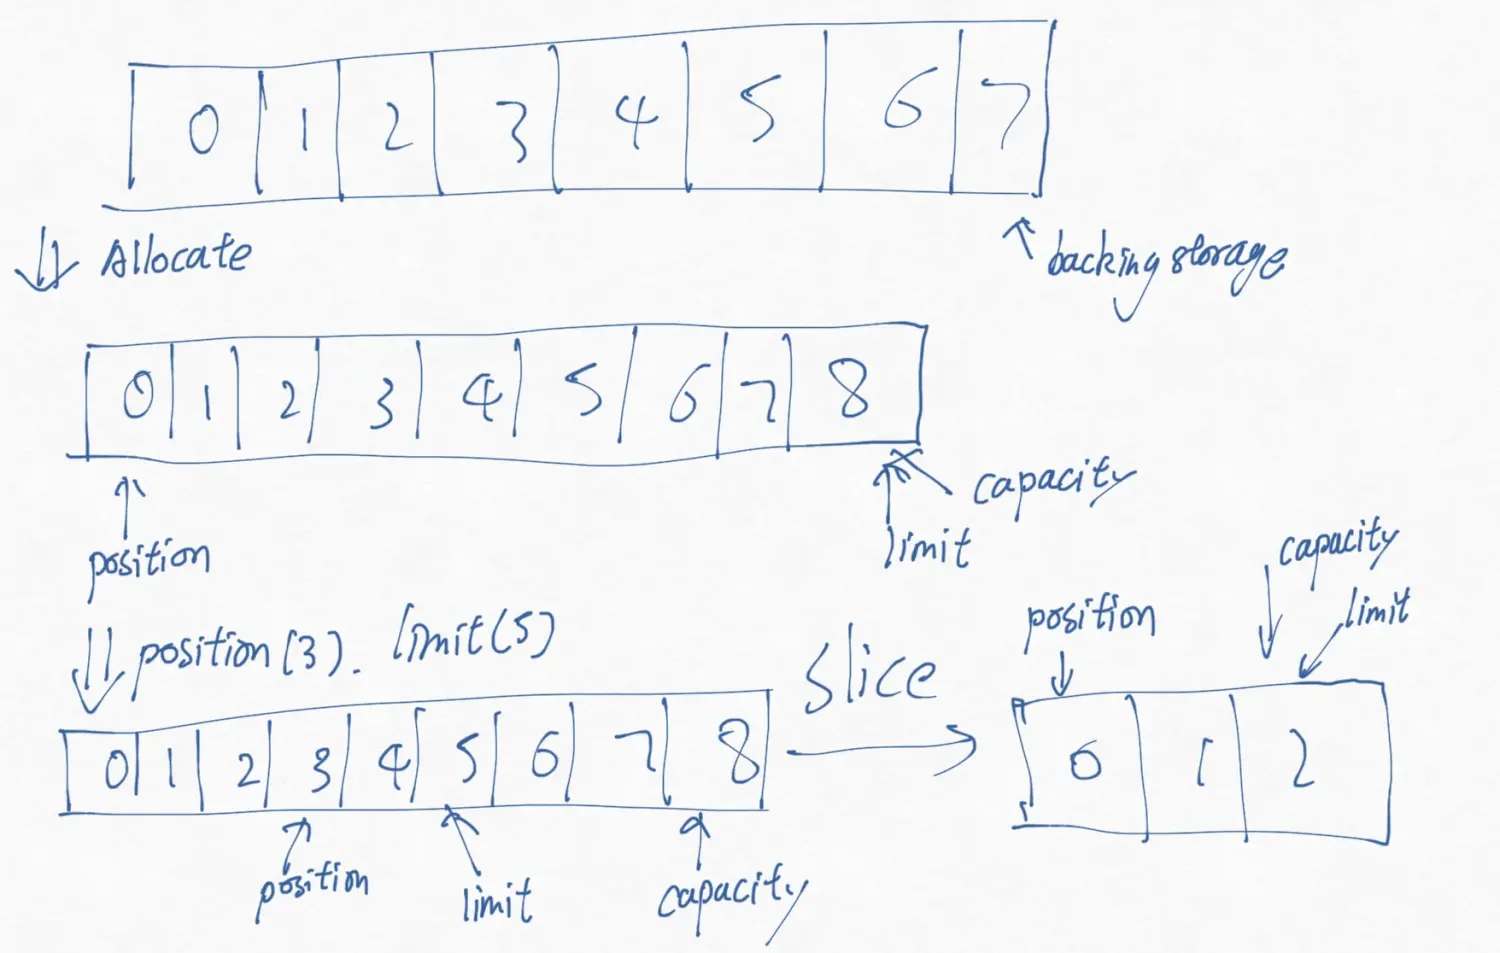 0 1 2 3 4 5 6 7
Allocate
backing storage
0 1 2 3 4 5 6 7 8
position
capacity
limit
position(3). limit(5)
0 1 2 3 4 5 6 7 8
position
limit
capacity
slice
position
capacity
limit
0 1 2